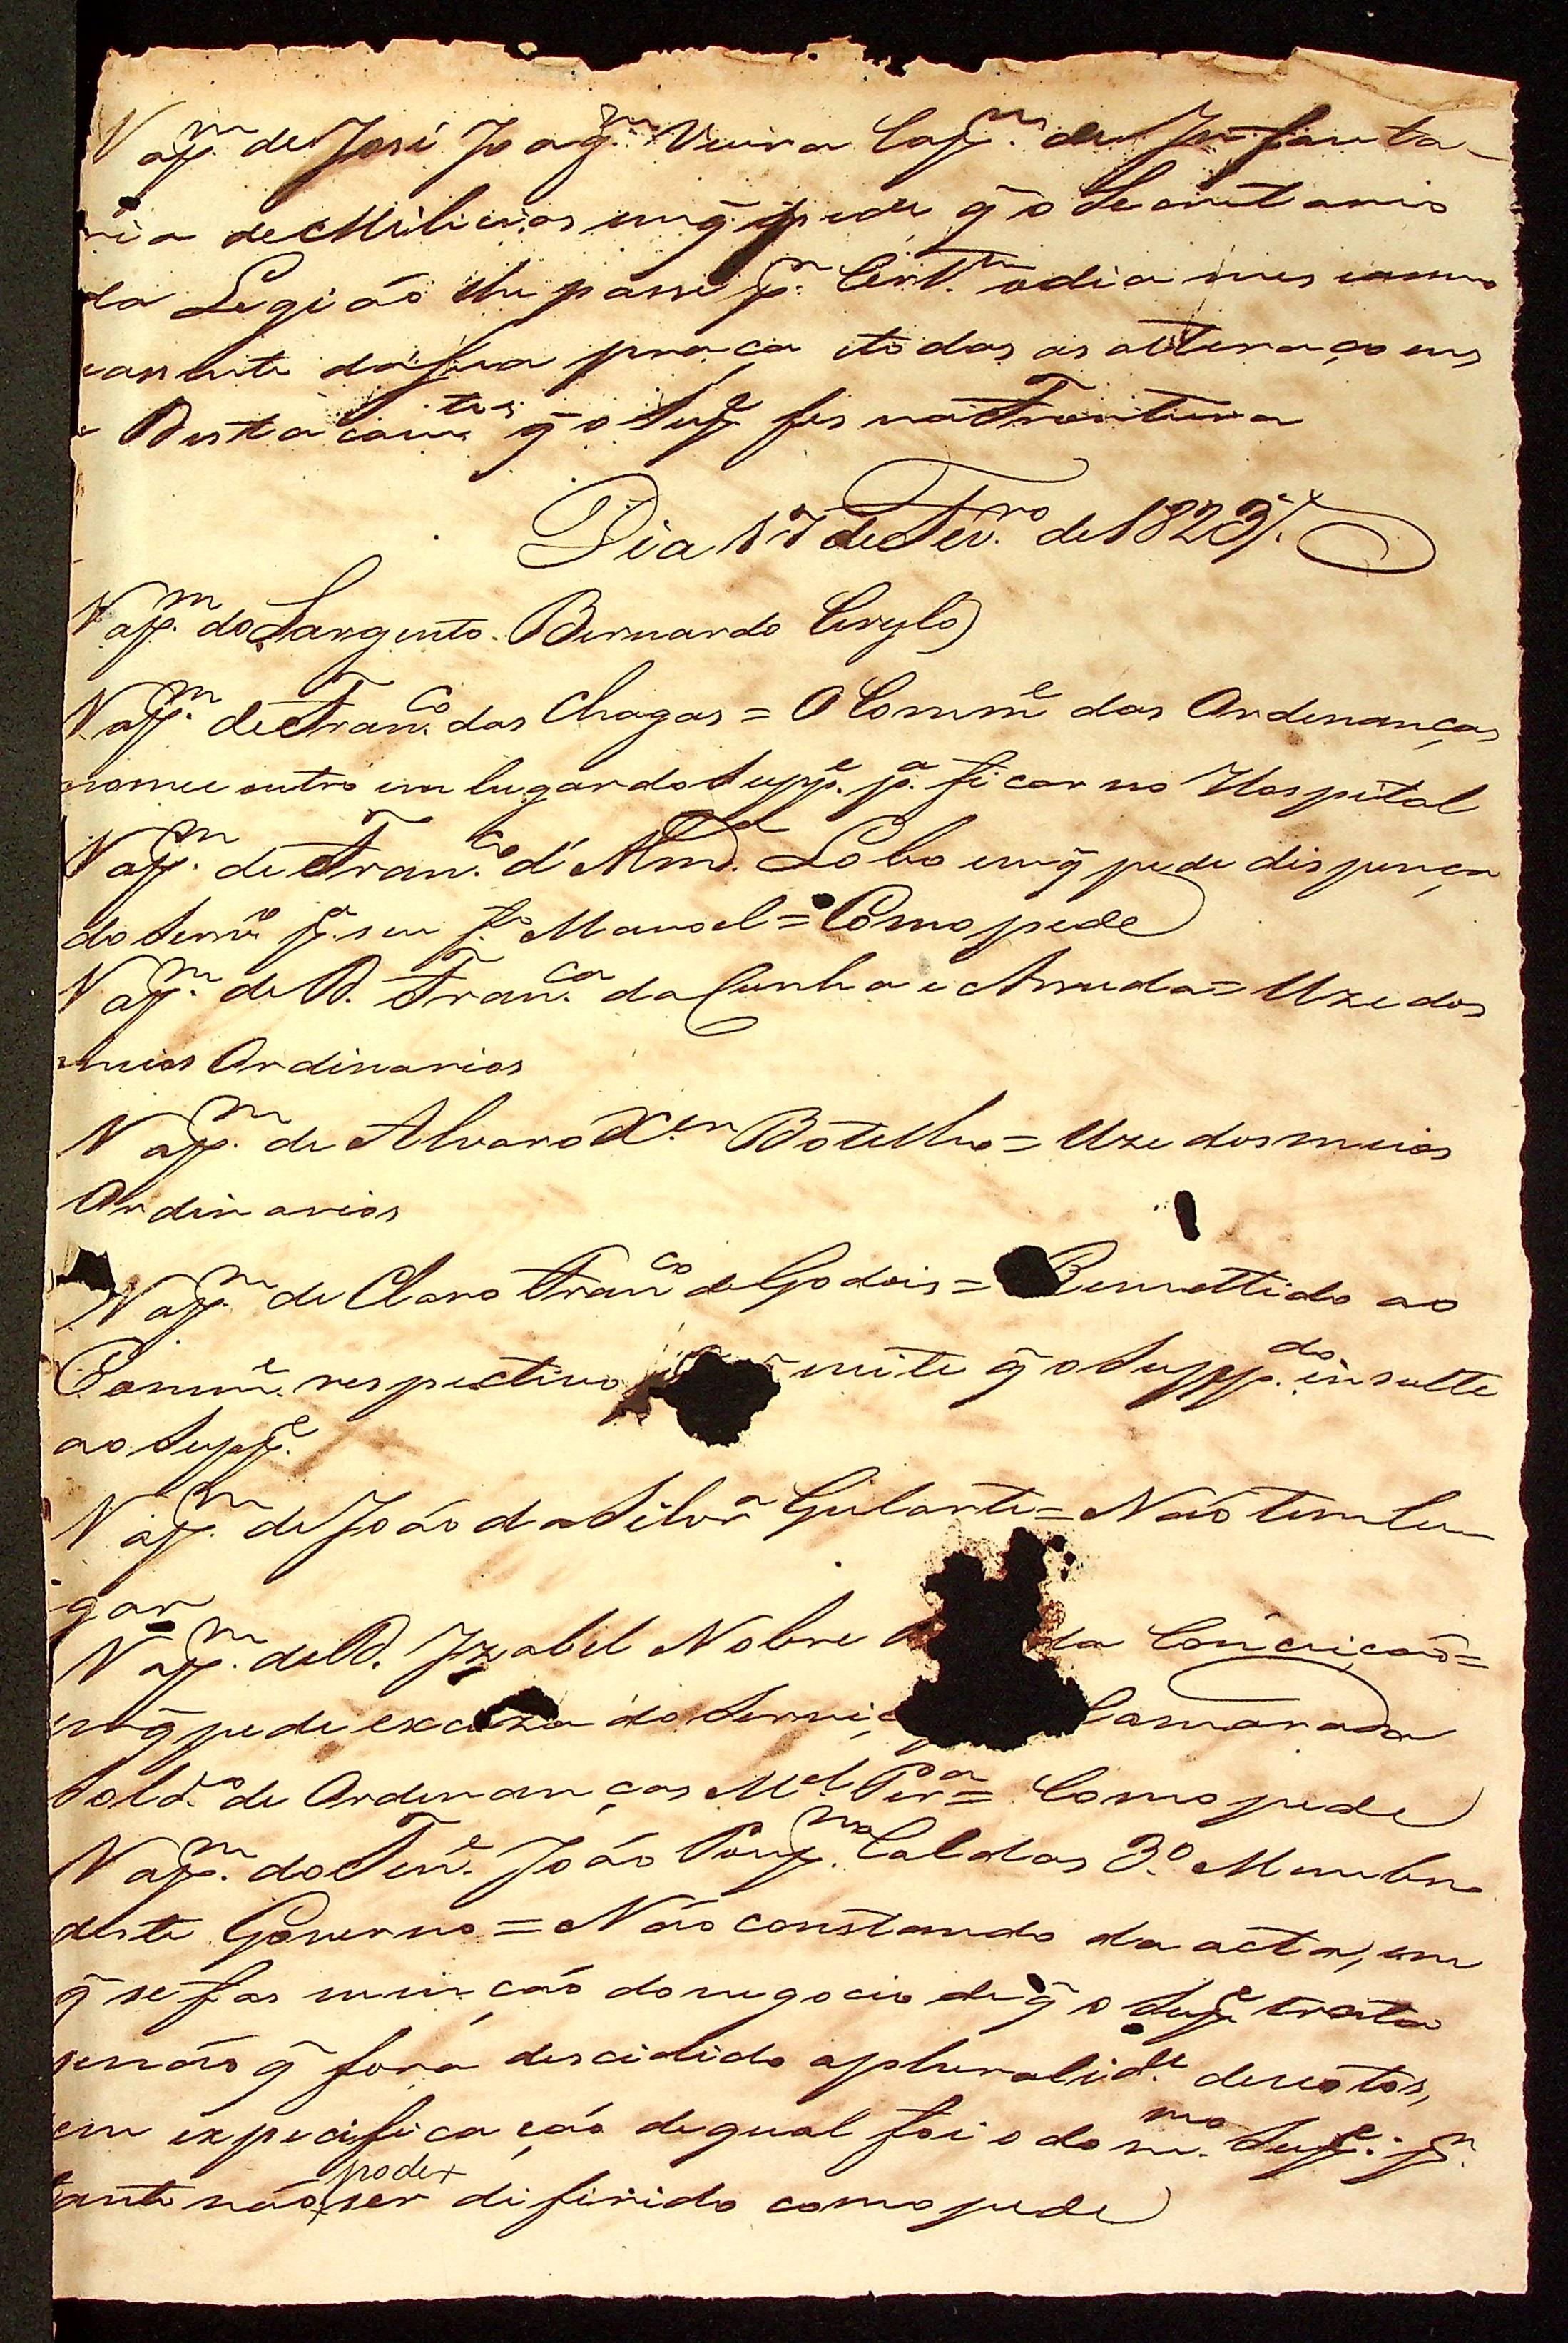 N a pp.m de José Joaq.m Vieira Cap.m de Infanta-
ria de Milicias em q̃ pede q̃ o Secretario
da Legião lhe passe p.r Cert.m o dia mes e anno
e assente da sua praça e todas as alteraçoens
e Destacam.tos q̃ o Sup.e fes na Fronteira
Dia 17 de Fev.ro de 1823//.
N a pp.m do Sargento Bernardo Cerylo
N a pp.m de Fran.co das Chagas = O Comm.e das Ordenanças
nomee outro em lugar do Supp.e p.a ficar no Hospital
N a pp.m de Fran.co d' Alm.da Lobo em q̃ pede dispença
do Serv.o p.a seu f.o Manoel = Como pede
N a pp.m de D. Fran.ca da Cunha e Arruda = Uze dos
meios Ordinarios
N a pp.m de Alvaro X.er Botelho = Uze dos meios
Ordinarios
N a pp.m de Claro Fran.co de Godois = Remettido ao
Comm.e respectivo mite q̃ o Supp.do insulte
ao Supp.e
N a pp.m de João da Silv.a Gularte = Não tem lu-
gar
N a pp.m de D. Izabel Nobre da Conceição =
em q̃ pede escuza do Servi Camarada
Sold.o de Ordenanças M.el Per.a = Como pede
N a pp.m do Ten.e João Pomp.no Caldas 3.o Membro
deste Governo = Não constando da acta, em
q̃ se fas menção do negocio de q̃ o Sup.e trata
senão q̃ fora descidido a pluralid.e de votos,
sem expecificação de qual foi o do m.mo Sup.e: p.r
tanto não pode ser difirido como pede